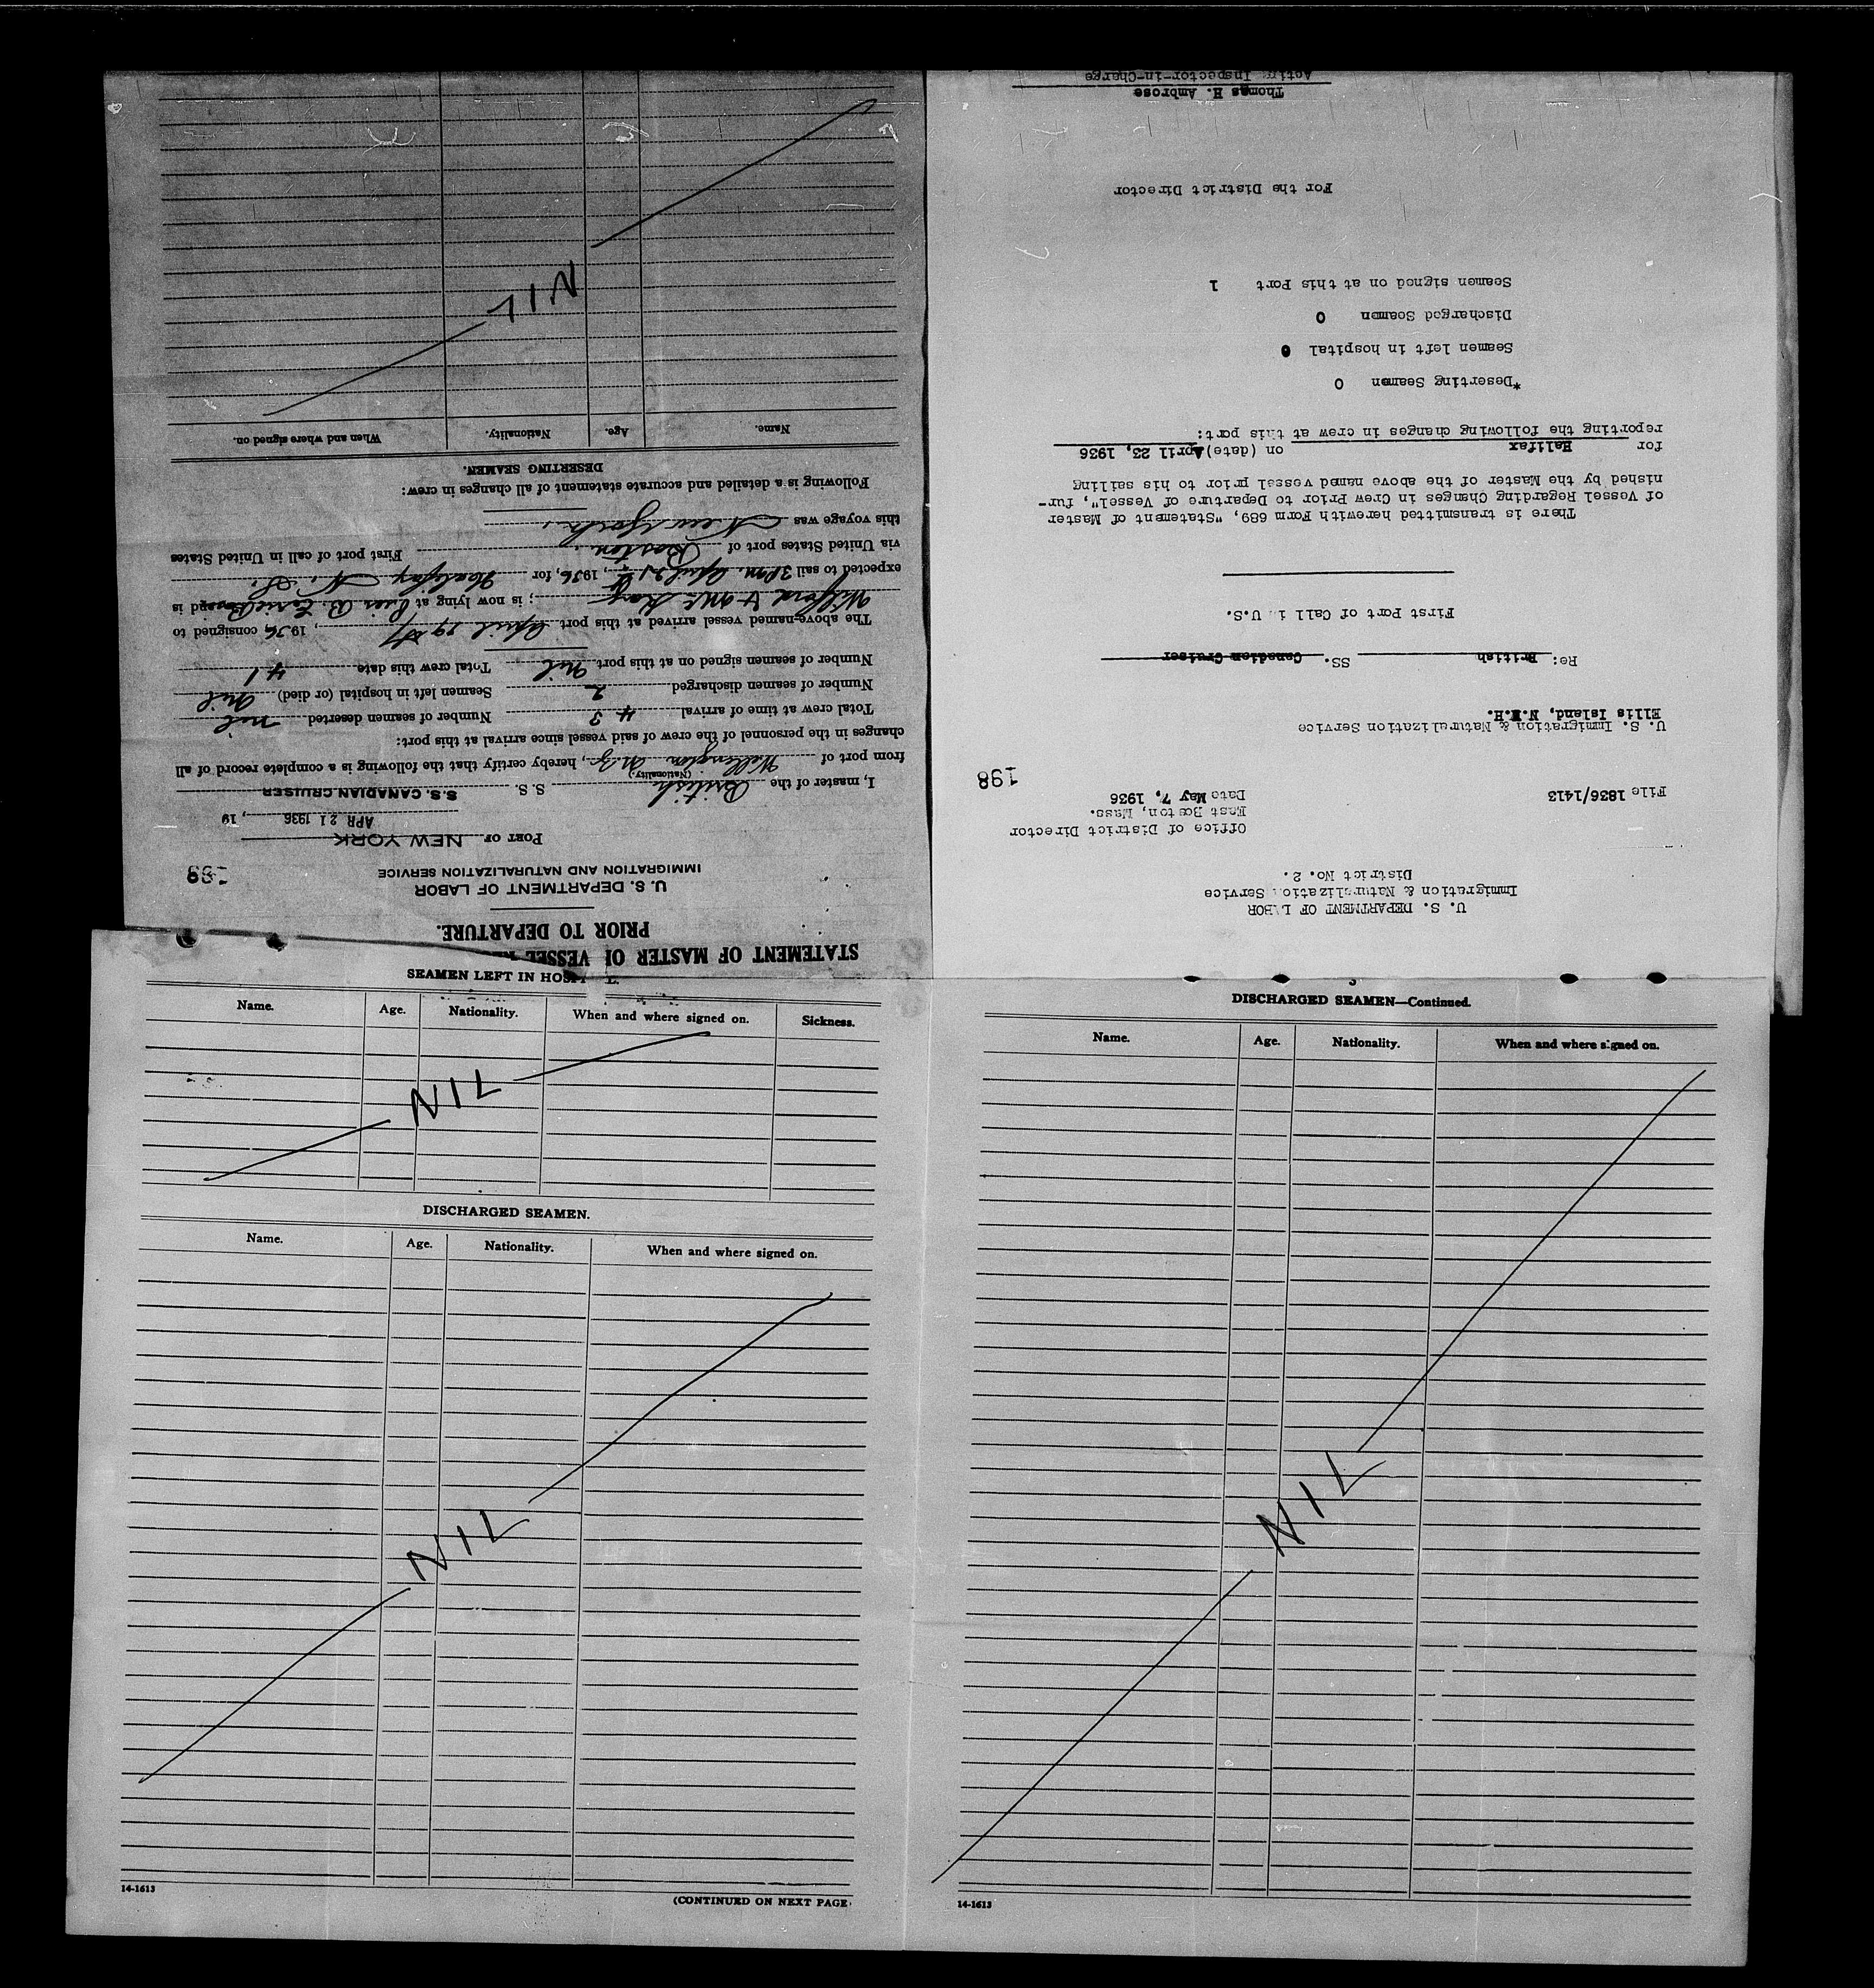 STATEMENT OF MASTER OF VESSEL
PRIOR TO DEPARTURE.
U. S. DEPARTMENT OF LABOR
IMMIGRATION AND NATURALIZATION SERVICE
198
PORT OF NEW YORK
APR 21 1936, 19
I, master of the British S. S. S.S. CANADIAN CRUISER
(Nationality.)
from port of Wellington N.Z., hereby certify that the following is a complete record of all
changes in the personnel of the crew of said vessel since arrival at this port:
Total crew at time of arrival 43 Number of seamen deserted nil
Number of seamen discharged 2 Seamen left in hospital (or died) Nil
Number of seamen signed on at this port Nil Total crew this date 41
The above-named vessel arrived at this port April 19th, 1936, consigned to
; is now lying at Pier B. and is
expected to sail 3 P.M. April 21st, 1936, for Halifax N. S.
via United States port of Boston. First port of call in United States
this voyage was New York.
Following is a detailed and accurate statement of all changes in crew:
DESERTING SEAMEN.
Name. Age. Nationality. When and where signed on.
NIL
U. S. DEPARTMENT OF LABOR
Immigration & Naturalization Service
District No. 2.
Office of District Director
East Boston, Mass.
File 1836/1413 Date May 7, 1936
198
U. S. Immigration & Naturalization Service
Ellis Island, N.Y.H.
Re: British SS. Canadian Cruiser
First Port of Call in U.S.
There is transmitted herewith Form 689, "Statement of Master
of Vessel Regarding Changes in Crew Prior to Departure of Vessel", fur-
nished by the Master of the above named vessel prior to his sailing
for Halifax on (date) April 23, 1936
reporting the following changes in crew at this port:
*Deserting Seamen 0
Seamen left in hospital 0
Discharged Seamen 0
Seamen signed on at this Port 1
For the District Director
Thomas H. Ambrose
Acting Inspector-in-Charge
SEAMEN LEFT IN HOSPITAL
Name. Age. Nationality. When and where signed on. Sickness.
NIL
DISCHARGED SEAMEN.
Name. Age. Nationality. When and where signed on.
NIL
14-1613
(CONTINUED ON NEXT PAGE
DISCHARGED SEAMEN—Continued.
Name. Age. Nationality. When and where signed on.
NIL
14-1613